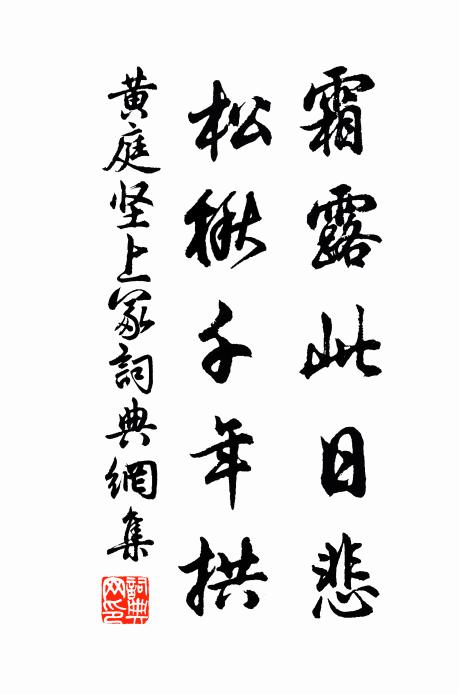 霜露此日悲
松楸千年拱
黄庭坚上冢詞典網集
詞典网印